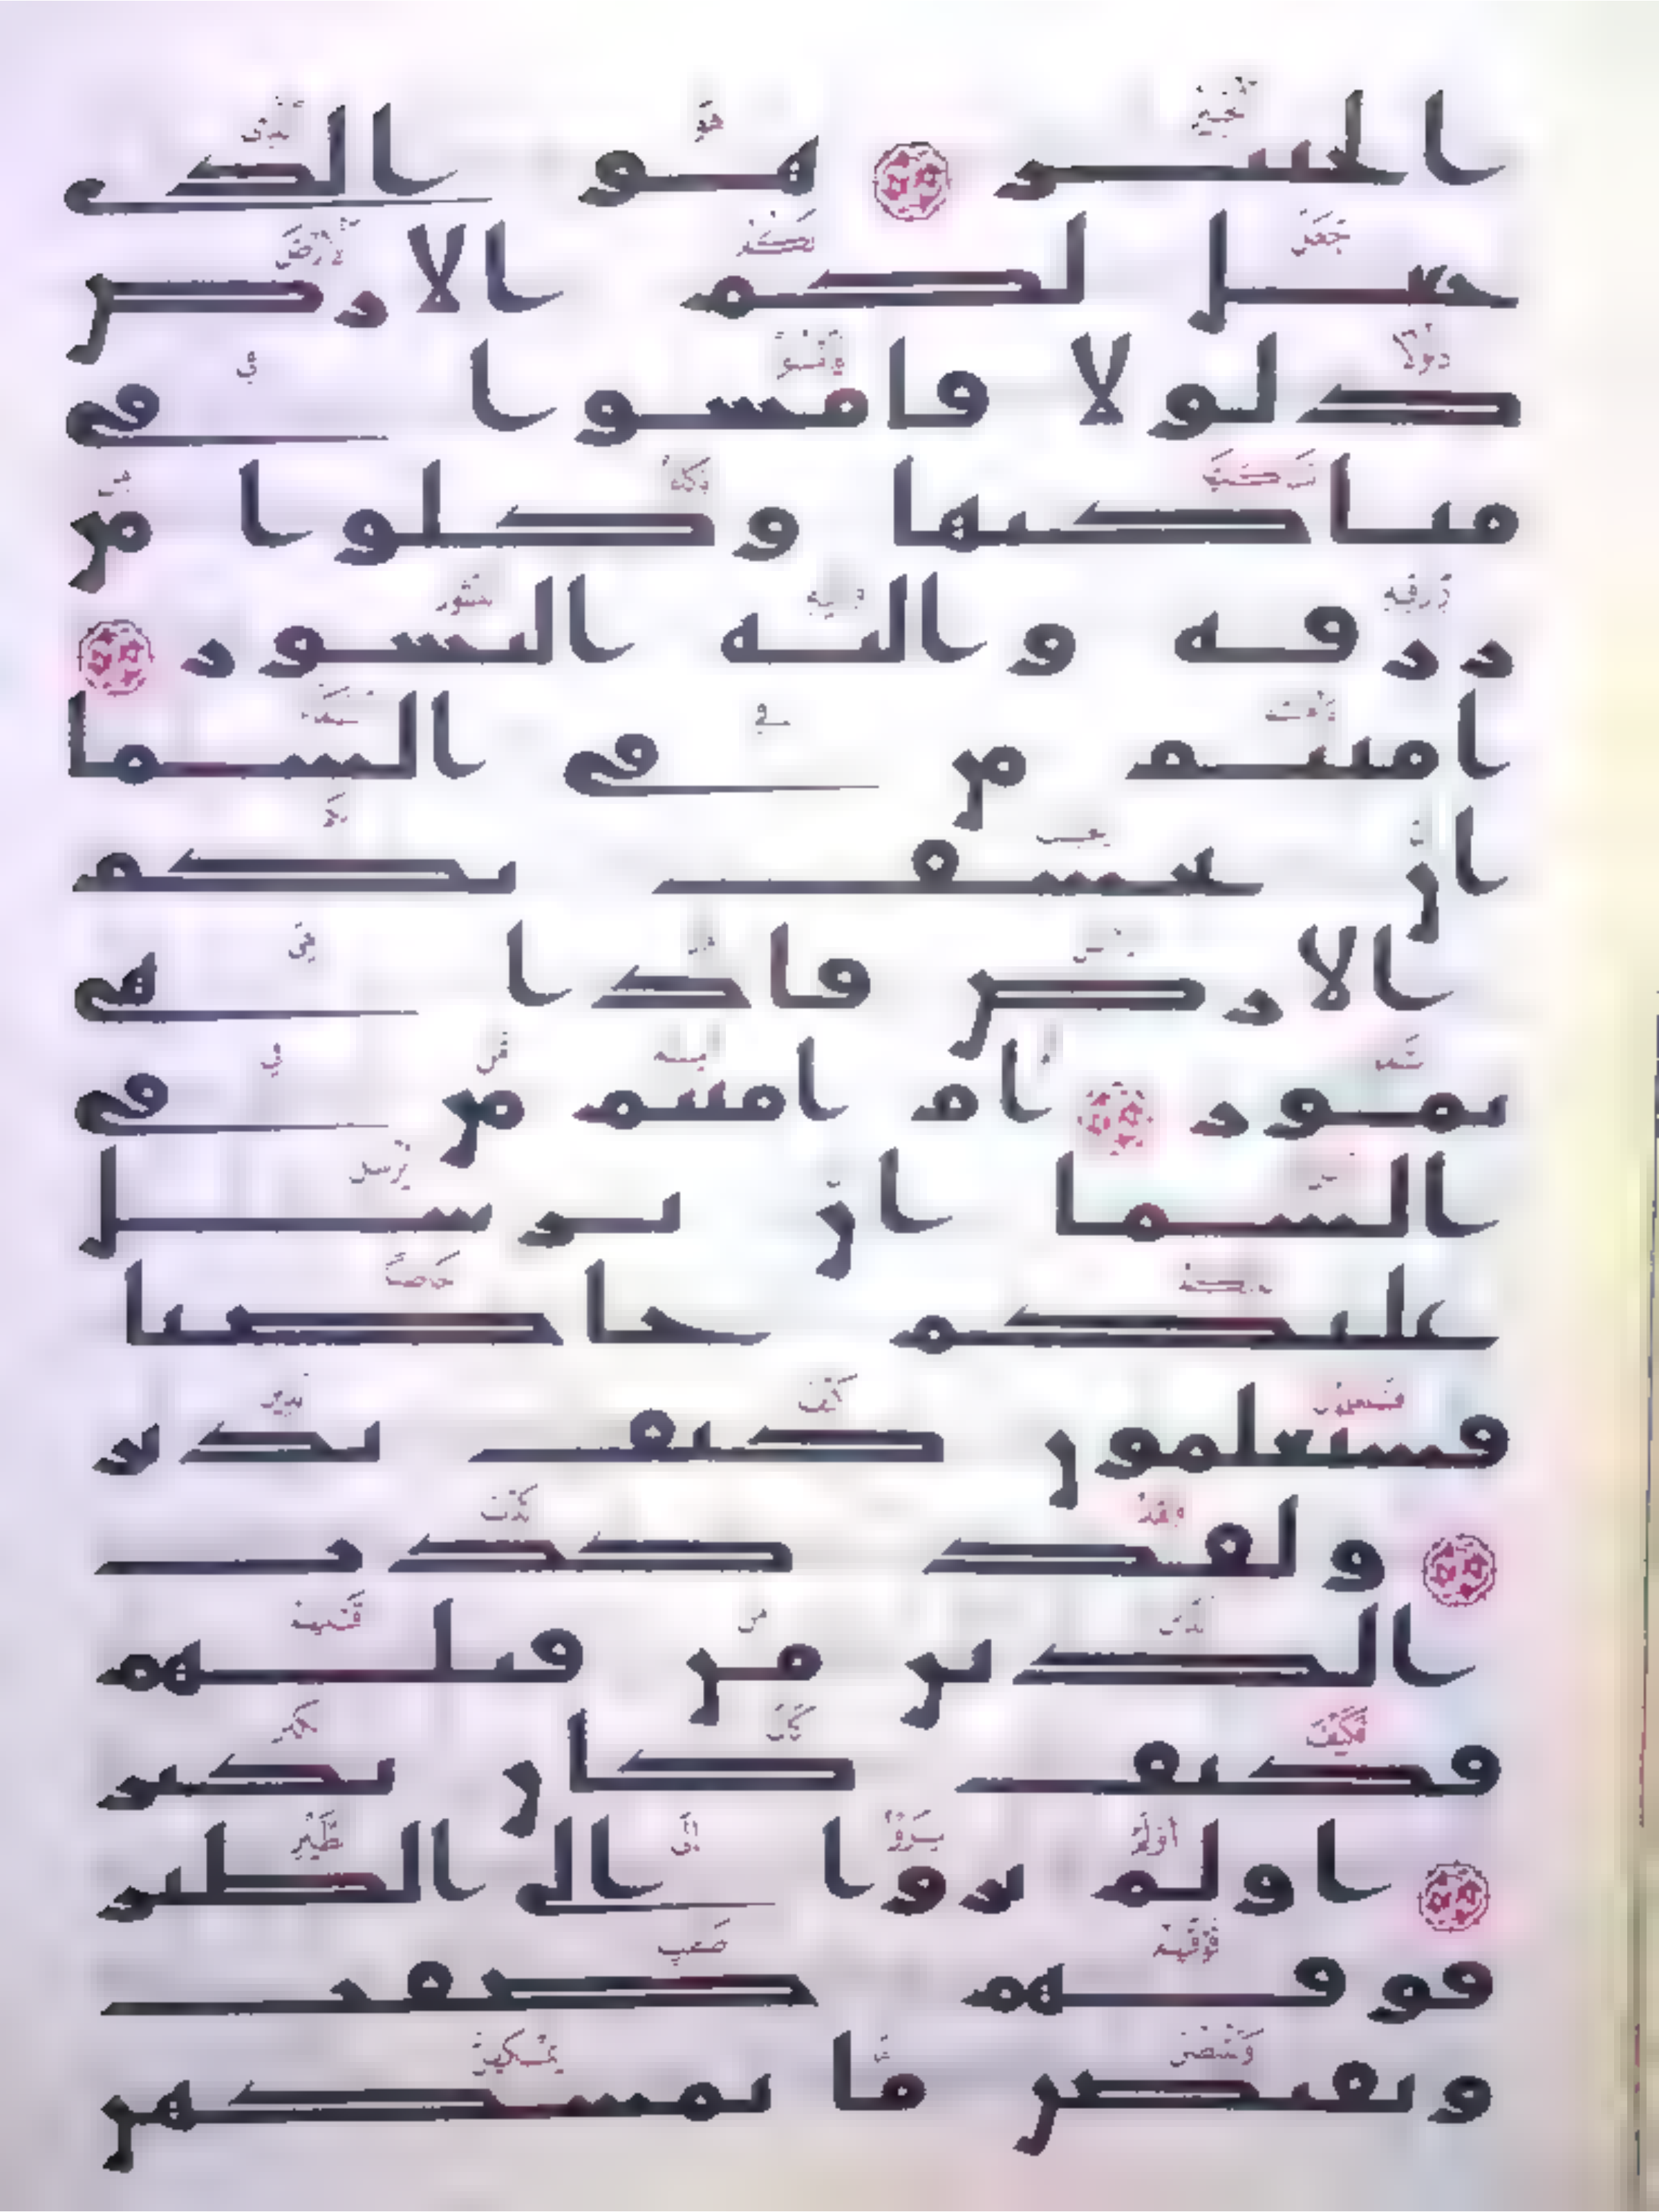 الخبير هو الذي
جعل لكم الارض
ذلولا فامشوا في
مناكبها وكلوا من
رزقه واليه النشور
امنتم من في السما
ان يخسف بكم
الارض فاذا هي
تمور ام امنتم من في
السما ان يرسل
عليكم حاصبا
فستعلمون كيف نذير
ولقد كذب
الذين من قبلهم
فكيف كان نكير
اولم يروا الى الطير
فوقهم صفت
ويقبضن ما يمسكهن